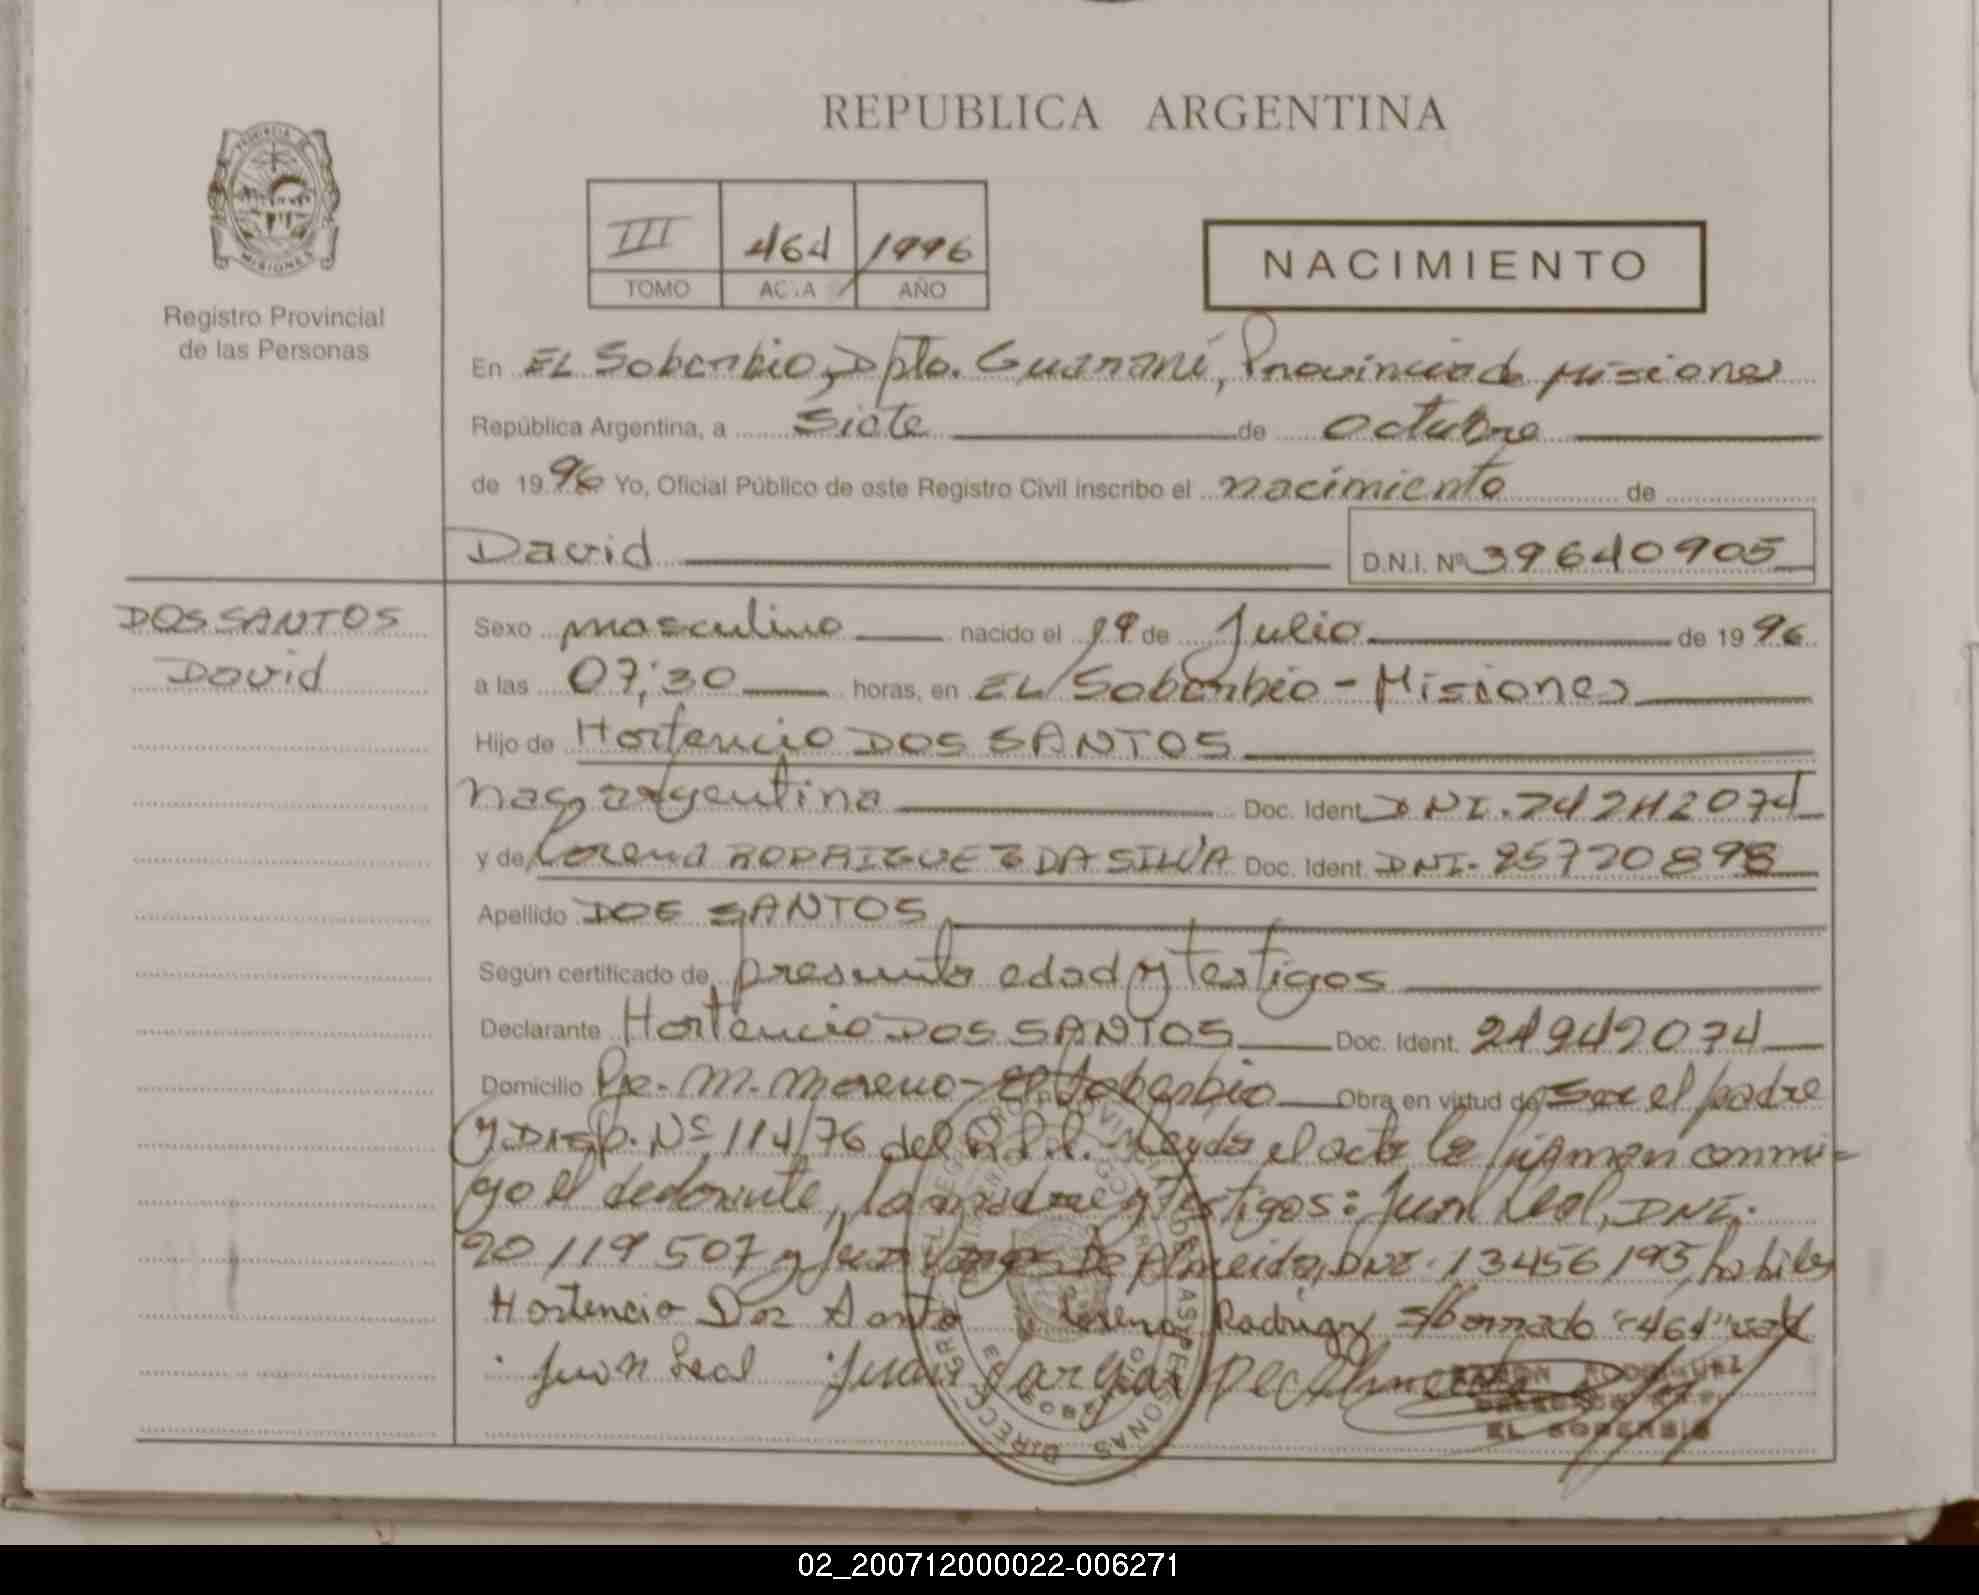 REPUBLICA ARGENTINA
III 464 1996
TOMO ACTA AÑO
NACIMIENTO
MISIONES
Registro Provincial
de las Personas
En EL Soberbio, Dpto. Guaraní, Provincia de Misiones
República Argentina, a siete de octubre
de 1996 Yo, Oficial Público de este Registro Civil inscribo el nacimiento de
David D.N.I. Nº 39640905
DOS SANTOS
David
Sexo masculino nacido el 19 de Julio de 1996
a las 07:30 horas, en EL Soberbio - Misiones
Hijo de Hortencio DOS SANTOS
nac. argentina Doc. Ident. DNI.
y de Lorena RODRIGUEZ DA SILVA Doc. Ident. DNI. 25720898
Apellido DOS SANTOS
Según certificado de presunta edad y testigos
Declarante Hortencio DOS SANTOS Doc. Ident. 24942074
Domicilio Pje. M. Moreno - El Soberbio Obra en virtud de ser el padre
y Disp. Nº 114/76 del R.P.P. Leyda el acta la firman conmi-
go el declarante, la madre y testigos: Juan Leal, DNI.
20119507 y Juan Vargas De Almeida, DNI. 13456195, habiles
Hortencio Dos Santo Lorena Rodriguez S/borrado "464" vale
Juan Leal Juan Vargas De Almeida
RAMON RODRIGUEZ
EL SOBERBIO
02_200712000022-006271